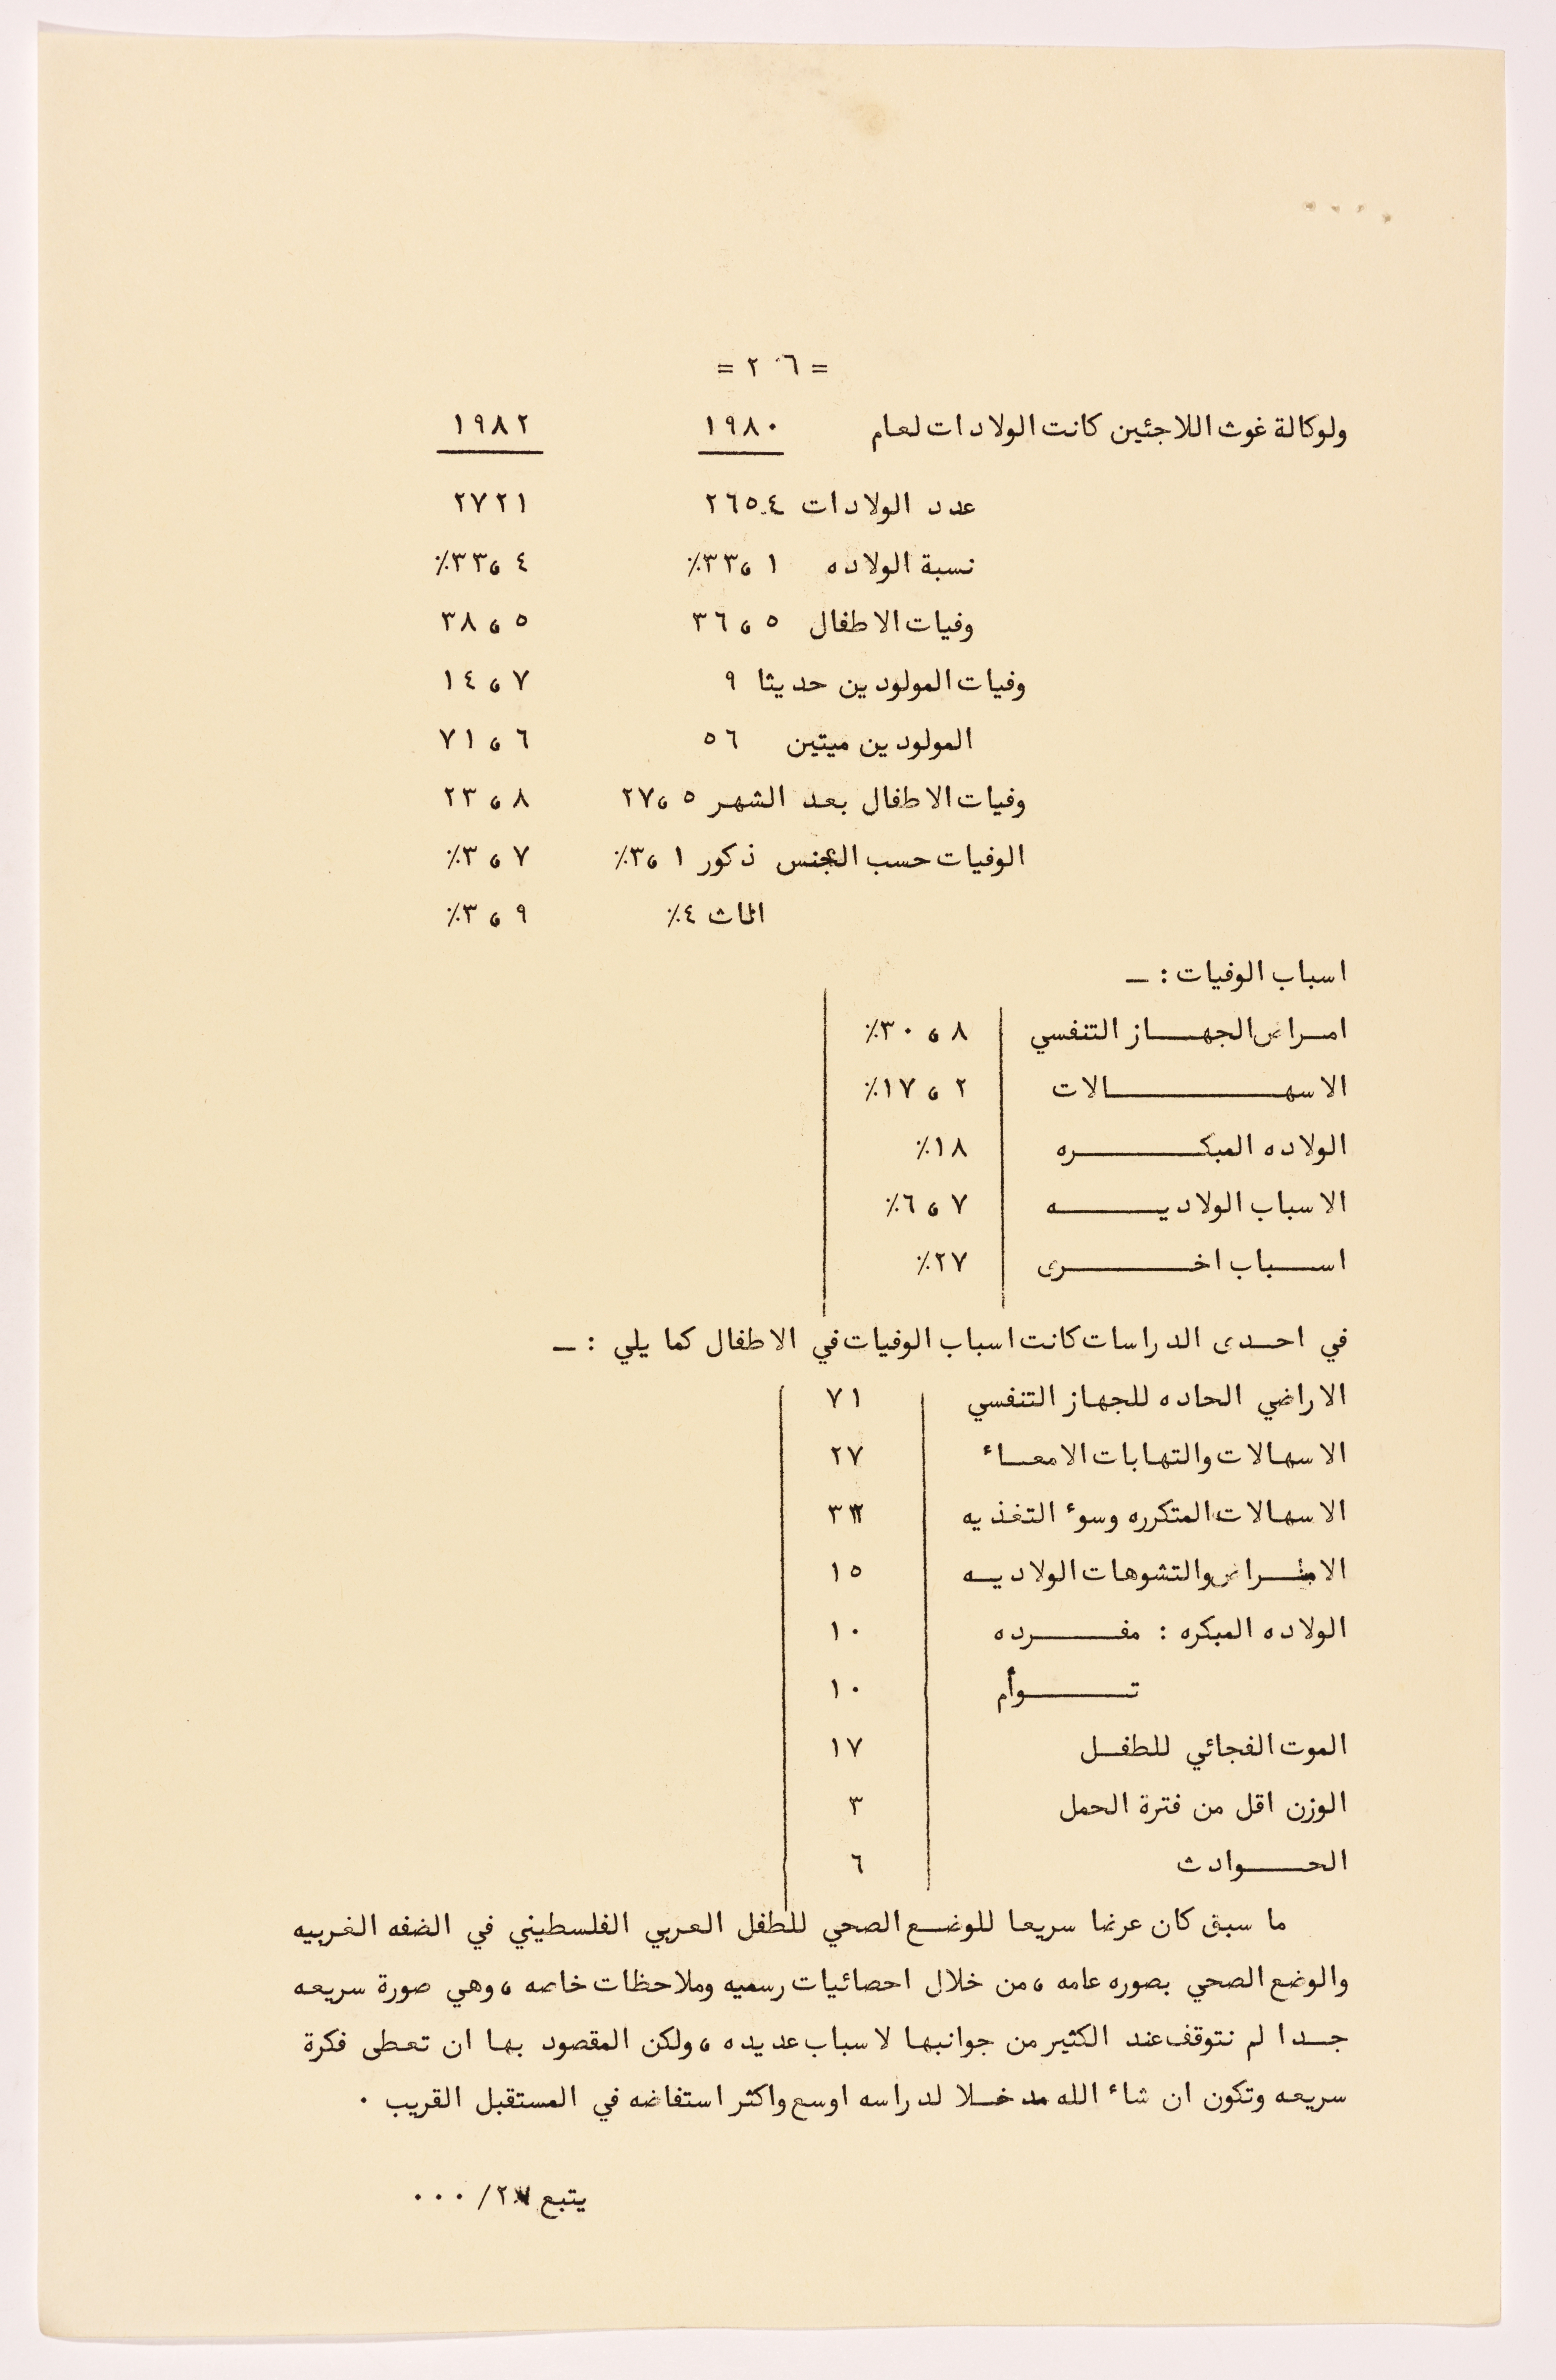 = ٢٦ =
ولوكالة غوث اللاجئين كانت الولادات لعام ١٩٨٠ ١٩٨٢
عدد الولادات ٢٦٥٤ ٢٧٢١
نسبة الولاده ٣٣،١٪ ٣٣،٤٪
وفيات الاطفال ٣٦،٥ ٣٨،٥
وفيات المولودين حديثا ٩ ١٤،٧
المولودين ميتين ٥٦ ٧١،٦
وفيات الاطفال بعد الشهر ٢٧،٥ ٢٣،٨
الوفيات حسب الجنس ذكور ٣،١٪ ٣،٧٪
اناث ٤٪ ٣،٩٪
اسباب الوفيات : ــ
امراض الجهاز التنفسي ٣٠،٨٪
الاسهالات ١٧،٢٪
الولاده المبكره ١٨٪
الاسباب الولاديه ٦،٧٪
اسباب اخرى ٢٧٪
في احدى الدراسات كانت اسباب الوفيات في الاطفال كما يلي : ــ
الاراضي الحاده للجهاز التنفسي ٧١
الاسهالات والتهابات الامعاء ٢٧
الاسهالات المتكرره وسوء التغذيه
الامراض والتشوهات الولاديه ١٥
الولاده المبكره : مفرده ١٠
توأم ١٠
الموت الفجائي للطفل ١٧
الوزن اقل من فترة الحمل ٣
الحوادث ٦
ما سبق كان عرضا سريعا للوضع الصحي للطفل العربي الفلسطيني في الضفه الغربيه
والوضع الصحي بصوره عامه ، من خلال احصائيات رسميه وملاحظات خاصه ، وهي صورة سريعه
جدا لم نتوقف عند الكثير من جوانبها لاسباب عديده ، ولكن المقصود بها ان تعطى فكرة
سريعه وتكون ان شاء الله مدخلا لدراسه اوسع واكثر استفاضه في المستقبل القريب ٠
يتبع ٢٧/ ٠٠٠